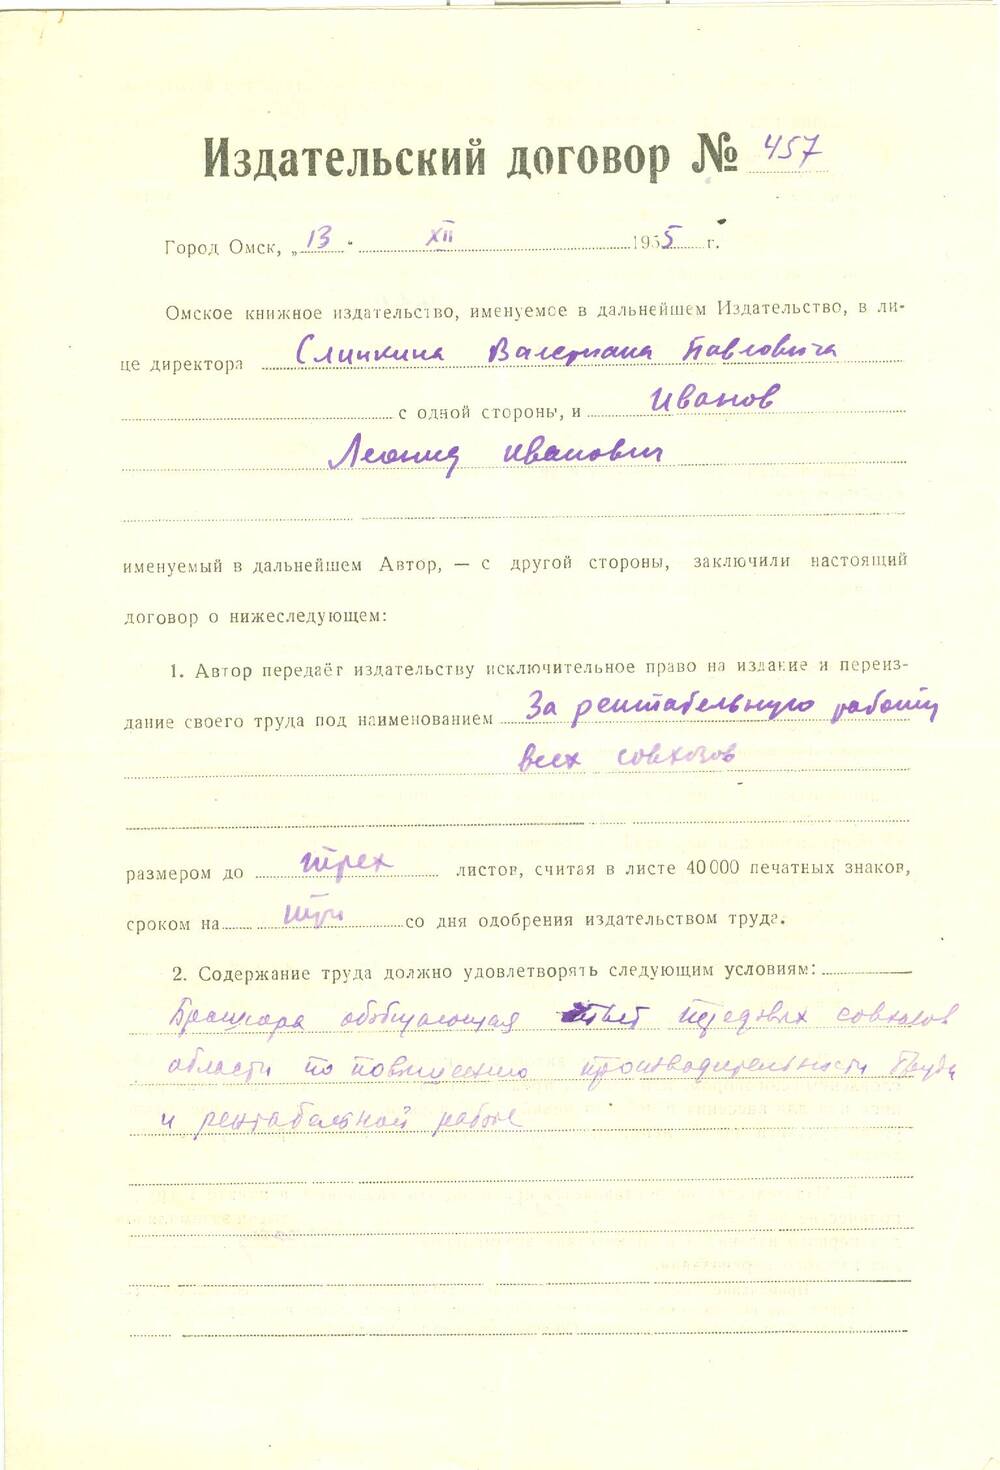 Издательский договор № 457
Город Омск, „13" XII 1955 г.
Омское книжное издательство, именуемое в дальнейшем Издательство, в ли-
це директора Слинкина Валериана Павловича
с одной стороны, и Иванов
Леонид Иванович
именуемый в дальнейшем Автор, — с другой стороны, заключили настоящий
договор о нижеследующем:
1. Автор передаёт издательству исключительное право на издание и переиз-
дание своего труда под наименованием За рентабельную работу
всех совхозов
размером до трех листов, считая в листе 40 000 печатных знаков,
сроком на три со дня одобрения издательством труда.
2. Содержание труда должно удовлетворять следующим условиям:
Брошюра обобщающая передовых совхозов
области по повышению производительности труда
и рентабельной работе